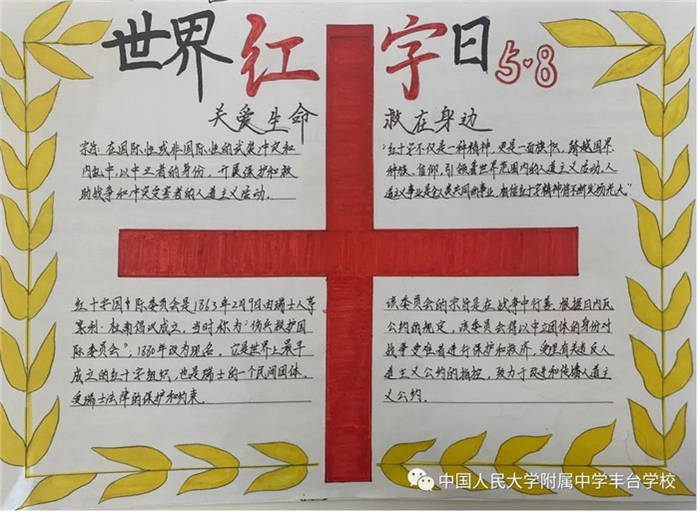 世界红十字日5·8
关爱生命 救在身边
宗旨:在国际性或非国际性的武装冲突和
内乱中,以中立者的身份,开展保护和救
助战争和冲突受害者的人道主义运动。
"红十字不仅是一种精神,更是一面旗帜,跨越国界
种族、信仰,引领着世界范围内的人道主义运动,人
道主义事业是全人类共同的事业,相信红十字精神将不断发扬光大"
红十字国际委员会是1863年2月9日由瑞士人亨
利·杜南倡议成立,当时称为"伤兵救护国
际委员会",1880年改为现名。它是世界上最早
成立的红十字组织,也是瑞士的一个民间团体,
受瑞士法律的保护和约束。
该委员会的宗旨是在战争中行善。根据日内瓦
公约的规定,该委员会得以中立团体的身份对
战争受难者进行保护和救济,受理有关违反人
道主义公约的指控,致力于改进和传播人道主
义公约。
中国人民大学附属中学丰台学校